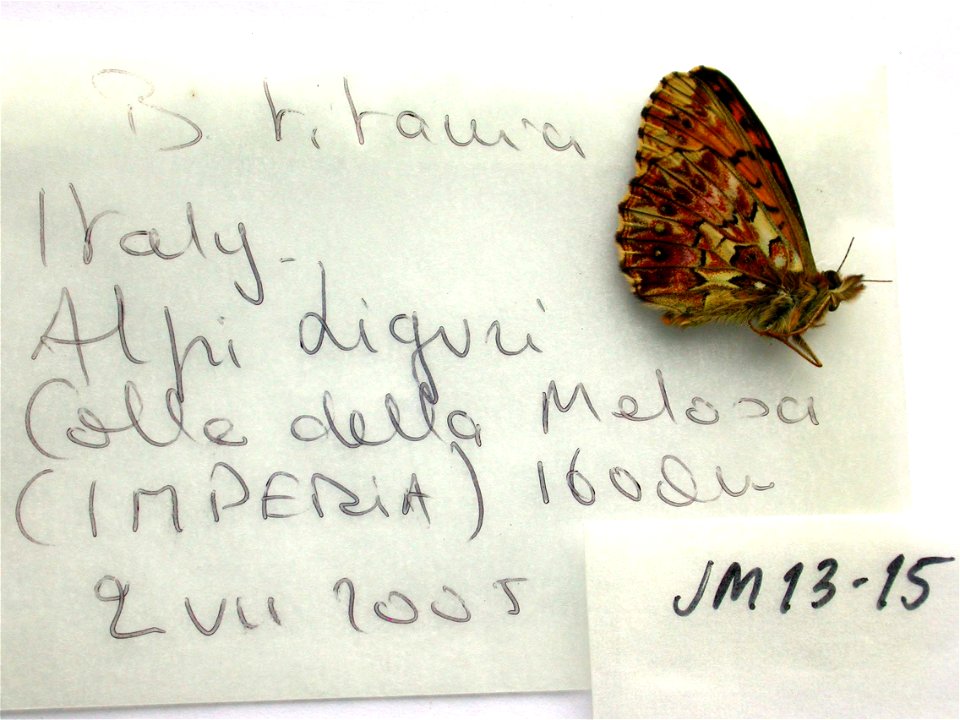 B. titania
Italy
Alpi Liguri
Colle della Melosa
(IMPERIA) 1600m
2 VII 2005
JM13-15